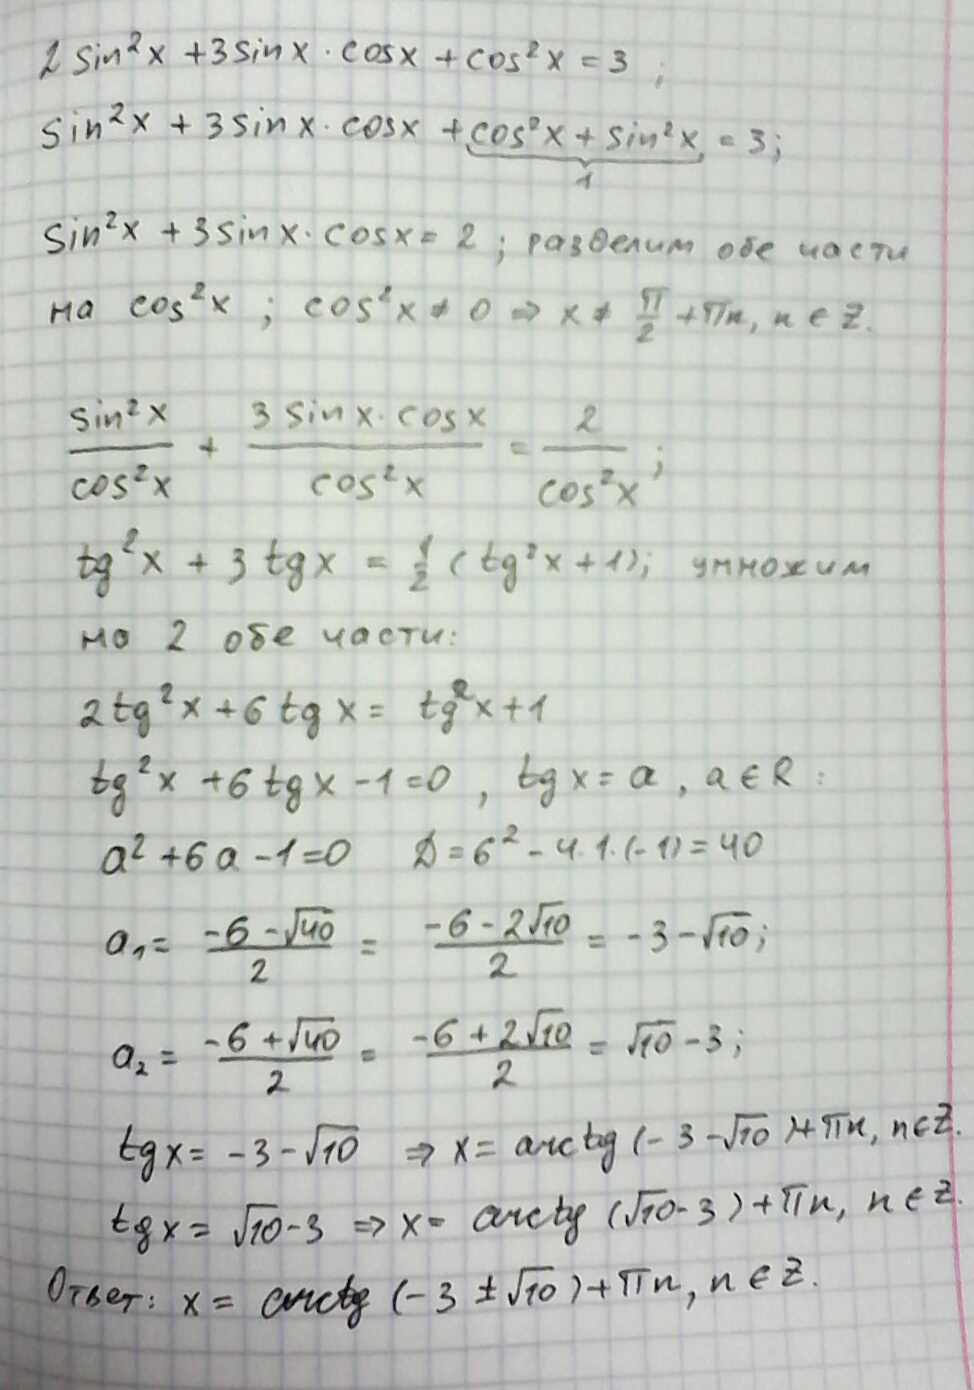 2 sin²x + 3 sin x · cos x + cos²x = 3 ;
sin²x + 3 sin x · cos x + cos²x + sin²x = 3;
1
sin²x + 3 sin x · cos x = 2 ; разделим обе части
на cos²x ; cos²x ≠ 0 ⇒ x ≠ π/2 + πn, n ∈ Z.
sin²x/cos²x + 3 sin x · cos x/cos²x = 2/cos²x ;
tg²x + 3 tg x = 1/2 (tg²x + 1); умножим
на 2 обе части:
2 tg²x + 6 tg x = tg²x + 1
tg²x + 6 tg x - 1 = 0 , tg x = a , a ∈ R :
a² + 6a - 1 = 0 D = 6² - 4·1·(-1) = 40
a₁ = (-6 - √40)/2 = (-6 - 2√10)/2 = -3 - √10;
a₂ = (-6 + √40)/2 = (-6 + 2√10)/2 = √10 - 3;
tg x = -3 - √10 ⇒ x = arctg (-3 - √10) + πn, n ∈ Z.
tg x = √10 - 3 ⇒ x = arctg (√10 - 3) + πn, n ∈ Z.
Ответ: x = arctg (-3 ± √10) + πn, n ∈ Z.